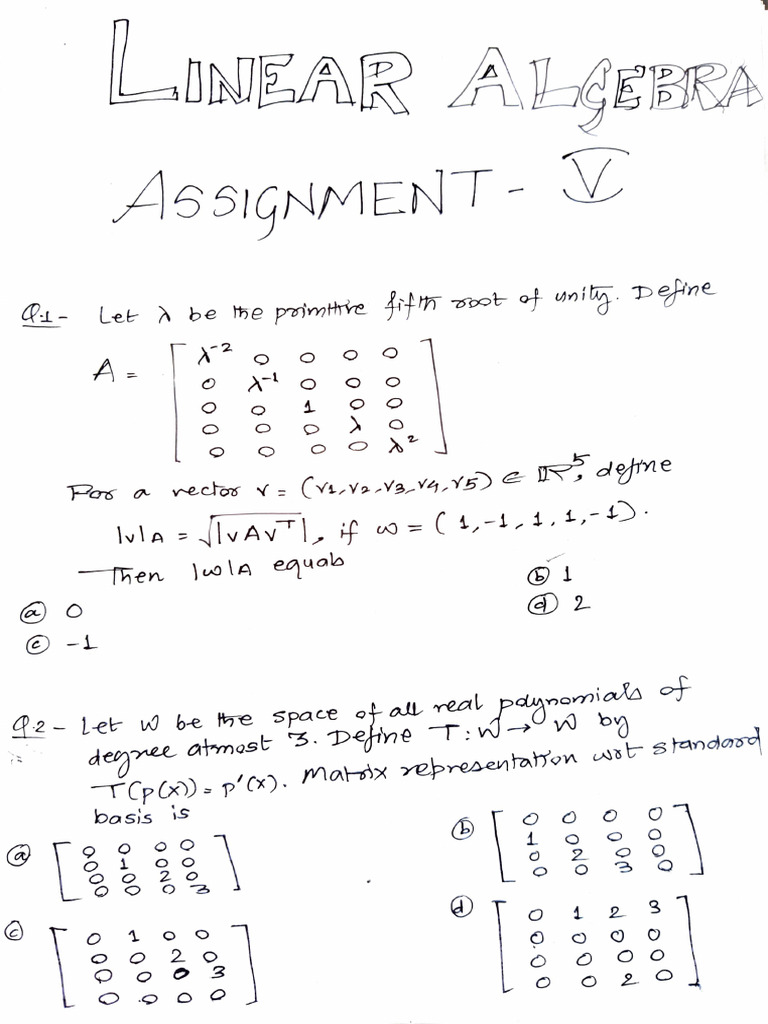 LINEAR ALGEBRA
ASSIGNMENT - V
Q.1 - Let λ be the primitive fifth root of unity. Define
A = [ λ⁻² 0 0 0 0
0 λ⁻¹ 0 0 0
0 0 1 0 0
0 0 0 λ 0
0 0 0 0 λ² ]
For a vector v = (v1, v2, v3, v4, v5) ∈ ℝ⁵, define
|v|A = √|vAvᵀ|, if w = (1, -1, 1, 1, -1).
Then |w|A equals
(a) 0 (b) 1
(c) -1 (d) 2
Q.2 - Let W be the space of all real polynomials of
degree atmost 3. Define T: W → W by
T(p(x)) = p'(x). Matrix representation wrt standard
basis is
(a) [ 0 0 0 0
0 1 0 0
0 0 2 0
0 0 0 3 ]
(b) [ 0 0 0 0
1 0 0 0
0 2 0 0
0 0 3 0 ]
(c) [ 0 1 0 0
0 0 2 0
0 0 0 3
0 0 0 0 ]
(d) [ 0 1 2 3
0 0 0 0
0 0 0 0
0 0 2 0 ]